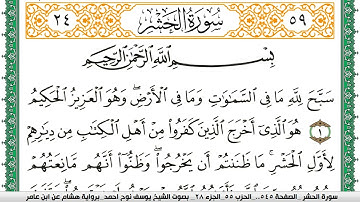 ٥٩ سُورَةُ الْحَشْرِ ٢٤
بِسْمِ اللَّهِ الرَّحْمَٰنِ الرَّحِيمِ
سَبَّحَ لِلَّهِ مَا فِي السَّمَٰوَٰتِ وَمَا فِي الْأَرْضِ وَهْوَ الْعَزِيزُ الْحَكِيمُ
١ هُوَ الَّذِي أَخْرَجَ الَّذِينَ كَفَرُوا مِنْ أَهْلِ الْكِتَٰبِ مِن دِيَٰرِهِمْ
لِأَوَّلِ الْحَشْرِ مَا ظَنَنتُمْ أَن يَخْرُجُوا وَظَنُّوا أَنَّهُم مَّانِعَتُهُمْ
سورة الحشر_الصفحة ٥٤٥_ الحزب ٥٥_الجزء ٢٨_ بصوت الشيخ يوسف نوح احمد_ برواية هشام عن ابن عامر